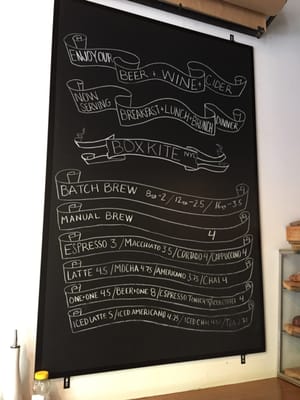 ENJOY OUR
BEER + WINE + CIDER
NOW SERVING
BREAKFAST + LUNCH + BRUNCH DINNER
BOXKITE NYC
BATCH BREW 8oz-2 / 12oz-2.5 / 16oz-3.5
MANUAL BREW 4
ESPRESSO 3 / MACCHIATO 3.5 / CORTADO 4 / CAPPUCCINO 4
LATTE 4.5 / MOCHA 4.75 / AMERICANO 3.75 / CHAI 4
ONE+ONE 4.5 / BEER+ONE 8 / ESPRESSO TONIC
ICED LATTE 5 / ICED AMERICANO 4.25 / ICED CHAI / TEA